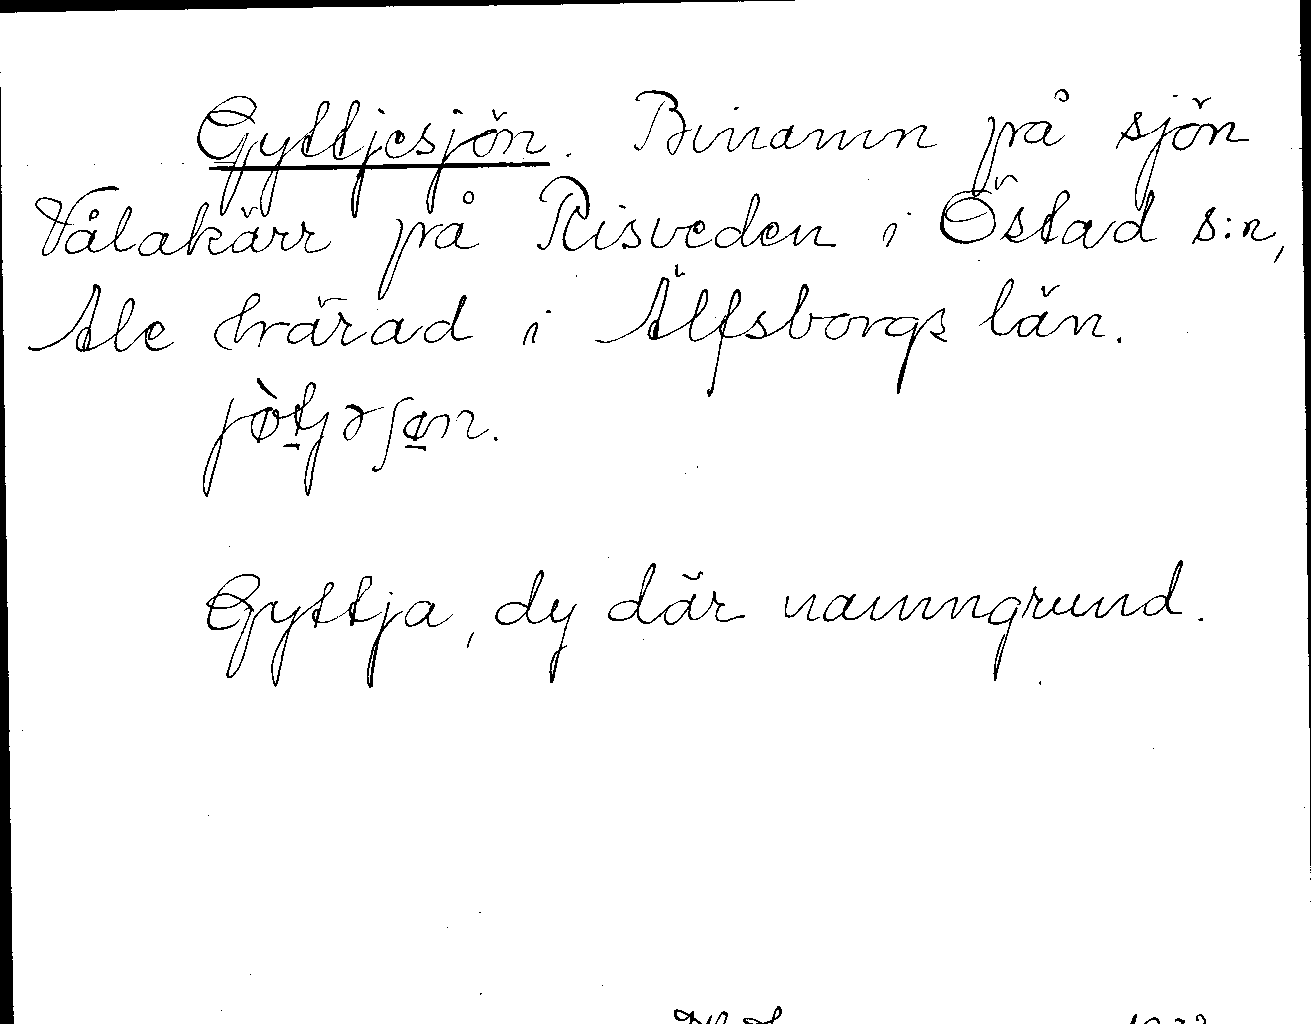 Gyttjesjön. Binamn på sjön
Vålakärr på Risveden i Östad s:n,
Ale härad i Älfsborgs län.
jø̀tjəʃøn.
Gyttja, dy där namngrund.